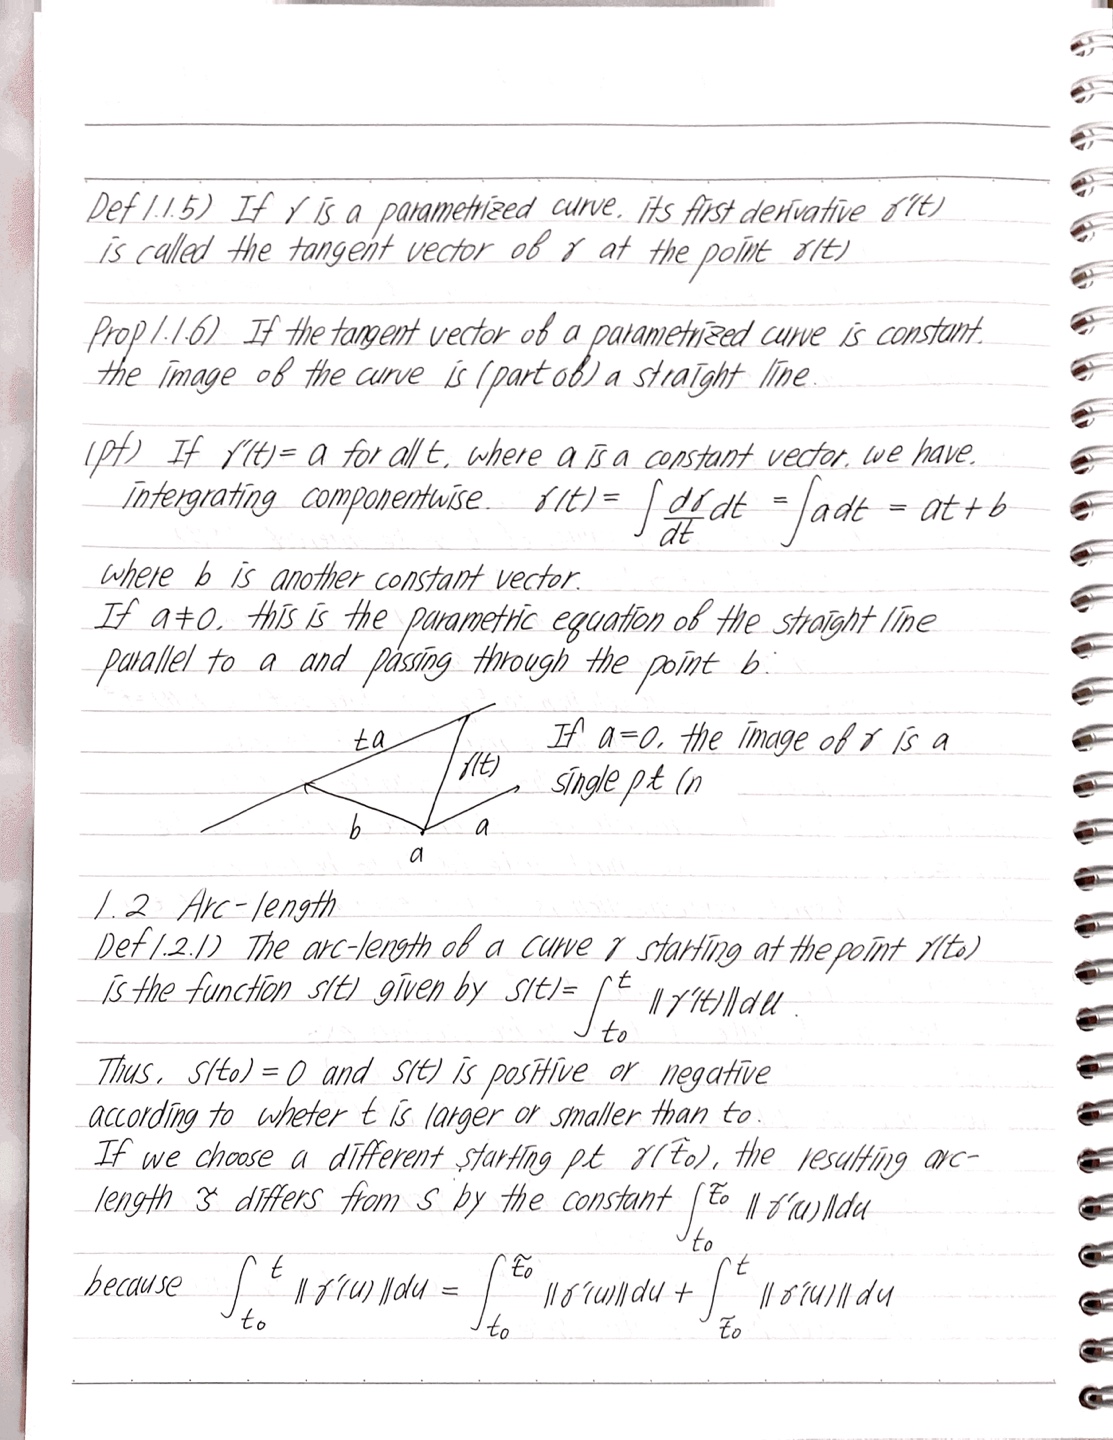 Def 1.1.5) If γ is a parametrized curve. its first derivative γ'(t)
is called the tangent vector of γ at the point γ(t)
Prop 1.1.6) If the tangent vector of a parametrized curve is constant.
the image of the curve is (part of) a straight line.
(pf) If γ'(t) = a for all t, where a is a constant vector, we have,
intergrating componentwise. γ(t) = ∫ dγ/dt dt = ∫ a dt = at + b
where b is another constant vector.
If a ≠ 0, this is the parametric equation of the straight line
parallel to a and passing through the point b.
ta
γ(t)
b
a
a
If a = 0, the image of γ is a
single pt (n
1.2 Arc-length
Def 1.2.1) The arc-length of a curve γ starting at the point γ(t₀)
is the function s(t) given by s(t) = ∫_{t₀}^{t} ‖γ'(t)‖du.
Thus, s(t₀) = 0 and s(t) is positive or negative
according to wheter t is larger or smaller than to.
If we choose a different starting pt γ(t̃₀), the resulting arc-
length s̃ differs from s by the constant ∫_{t₀}^{t̃₀} ‖γ'(u)‖du
because ∫_{t₀}^{t} ‖γ'(u)‖du = ∫_{t₀}^{t̃₀} ‖γ'(u)‖du + ∫_{t̃₀}^{t} ‖γ'(u)‖du